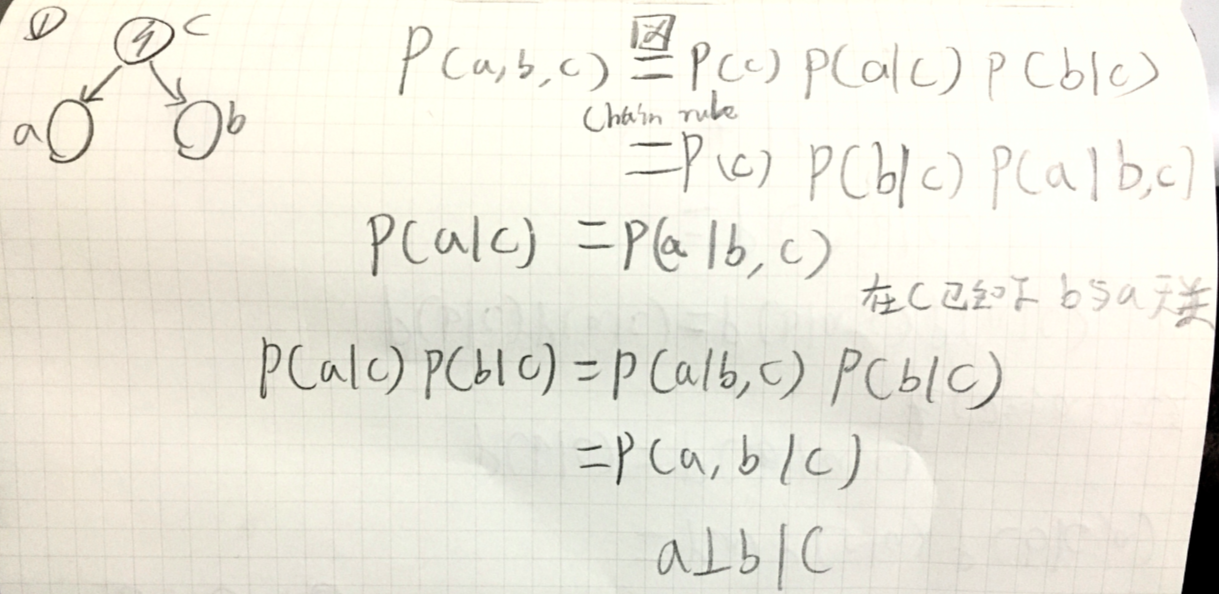 ① c
a b
P(a,b,c) 图= P(c) P(a|c) P(b|c)
Chain rule
=P(c) P(b|c) P(a|b,c)
P(a|c) =P(a|b,c)
在C已知下 b与a无关
P(a|c) P(b|c) = P(a|b,c) P(b|c)
=P(a,b|c)
a⊥b|C